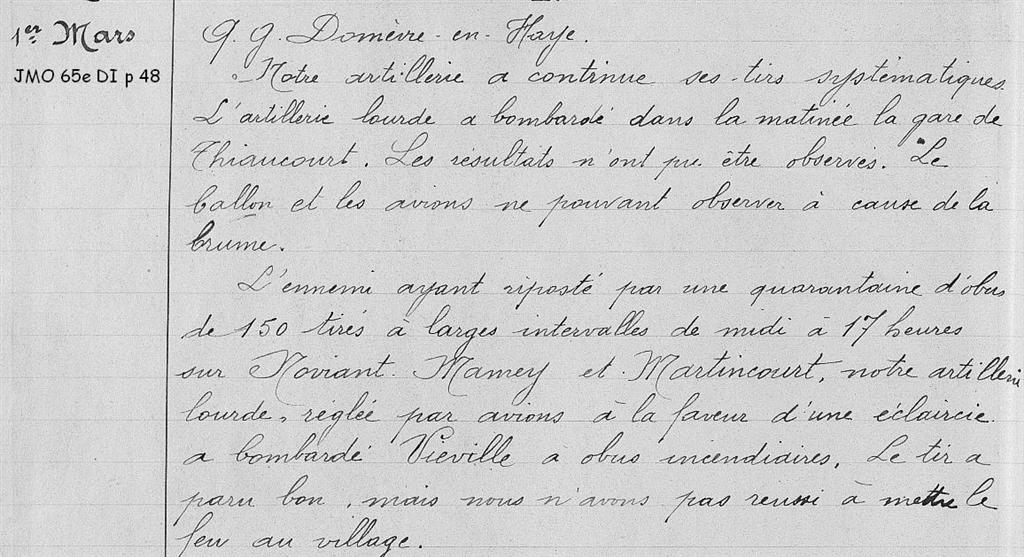 1er Mars
JMO 65e DI p 48
Q. G. Domèvre-en-Haye.
Notre artillerie a continue ses tirs systématiques.
L'artillerie lourde a bombardé dans la matinée la gare de
Thiaucourt. Les résultats n'ont pu être observés. Le
ballon et les avions ne pouvant observer à cause de la
brume.
L'ennemi ayant riposté par une quarantaine d'obus
de 150 tirés à larges intervalles de midi à 17 heures
sur Noviant. Mamey et Martincourt, notre artillerie
lourde, réglée par avions à la faveur d'une éclaircie
a bombardé Viéville à obus incendiaires. Le tir a
paru bon, mais nous n'avons pas réussi à mettre le
feu au village.